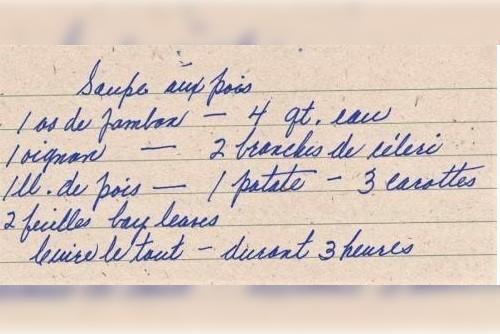 Soupe aux pois
1 os de jambon — 4 qt. eau
1 oignon — 2 branches de céleri
1 lb. de pois — 1 patate - 3 carottes
2 feuilles bay leaves
Cuire le tout - durant 3 heures